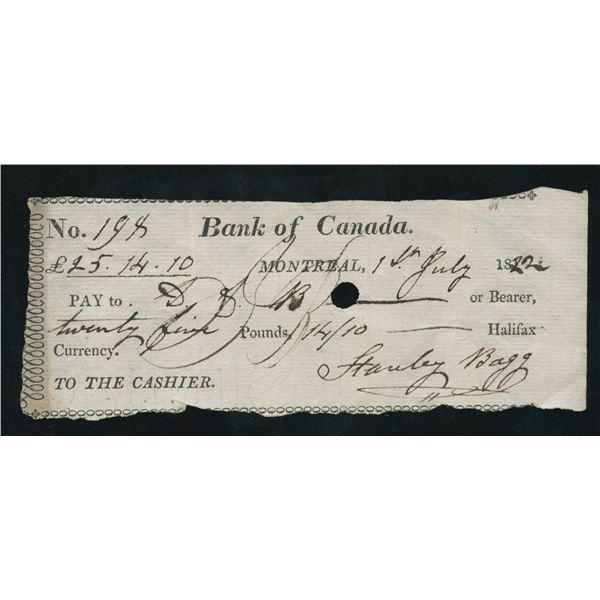 No. 198 Bank of Canada.
£25.14.10 MONTREAL, 1st July 1822
PAY to D. & B or Bearer,
twenty five Pounds, 14/10 Halifax
Currency.
TO THE CASHIER. Stanley Bagg